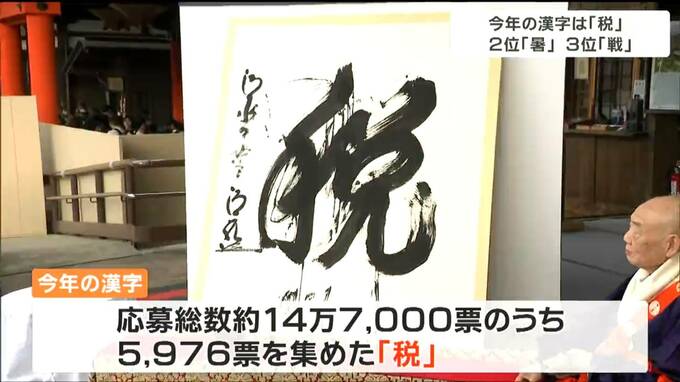 今年の漢字は「税」
2位「暑」 3位「戦」
税
今年の漢字
応募総数約14万7,000票のうち
5,976票を集めた「税」